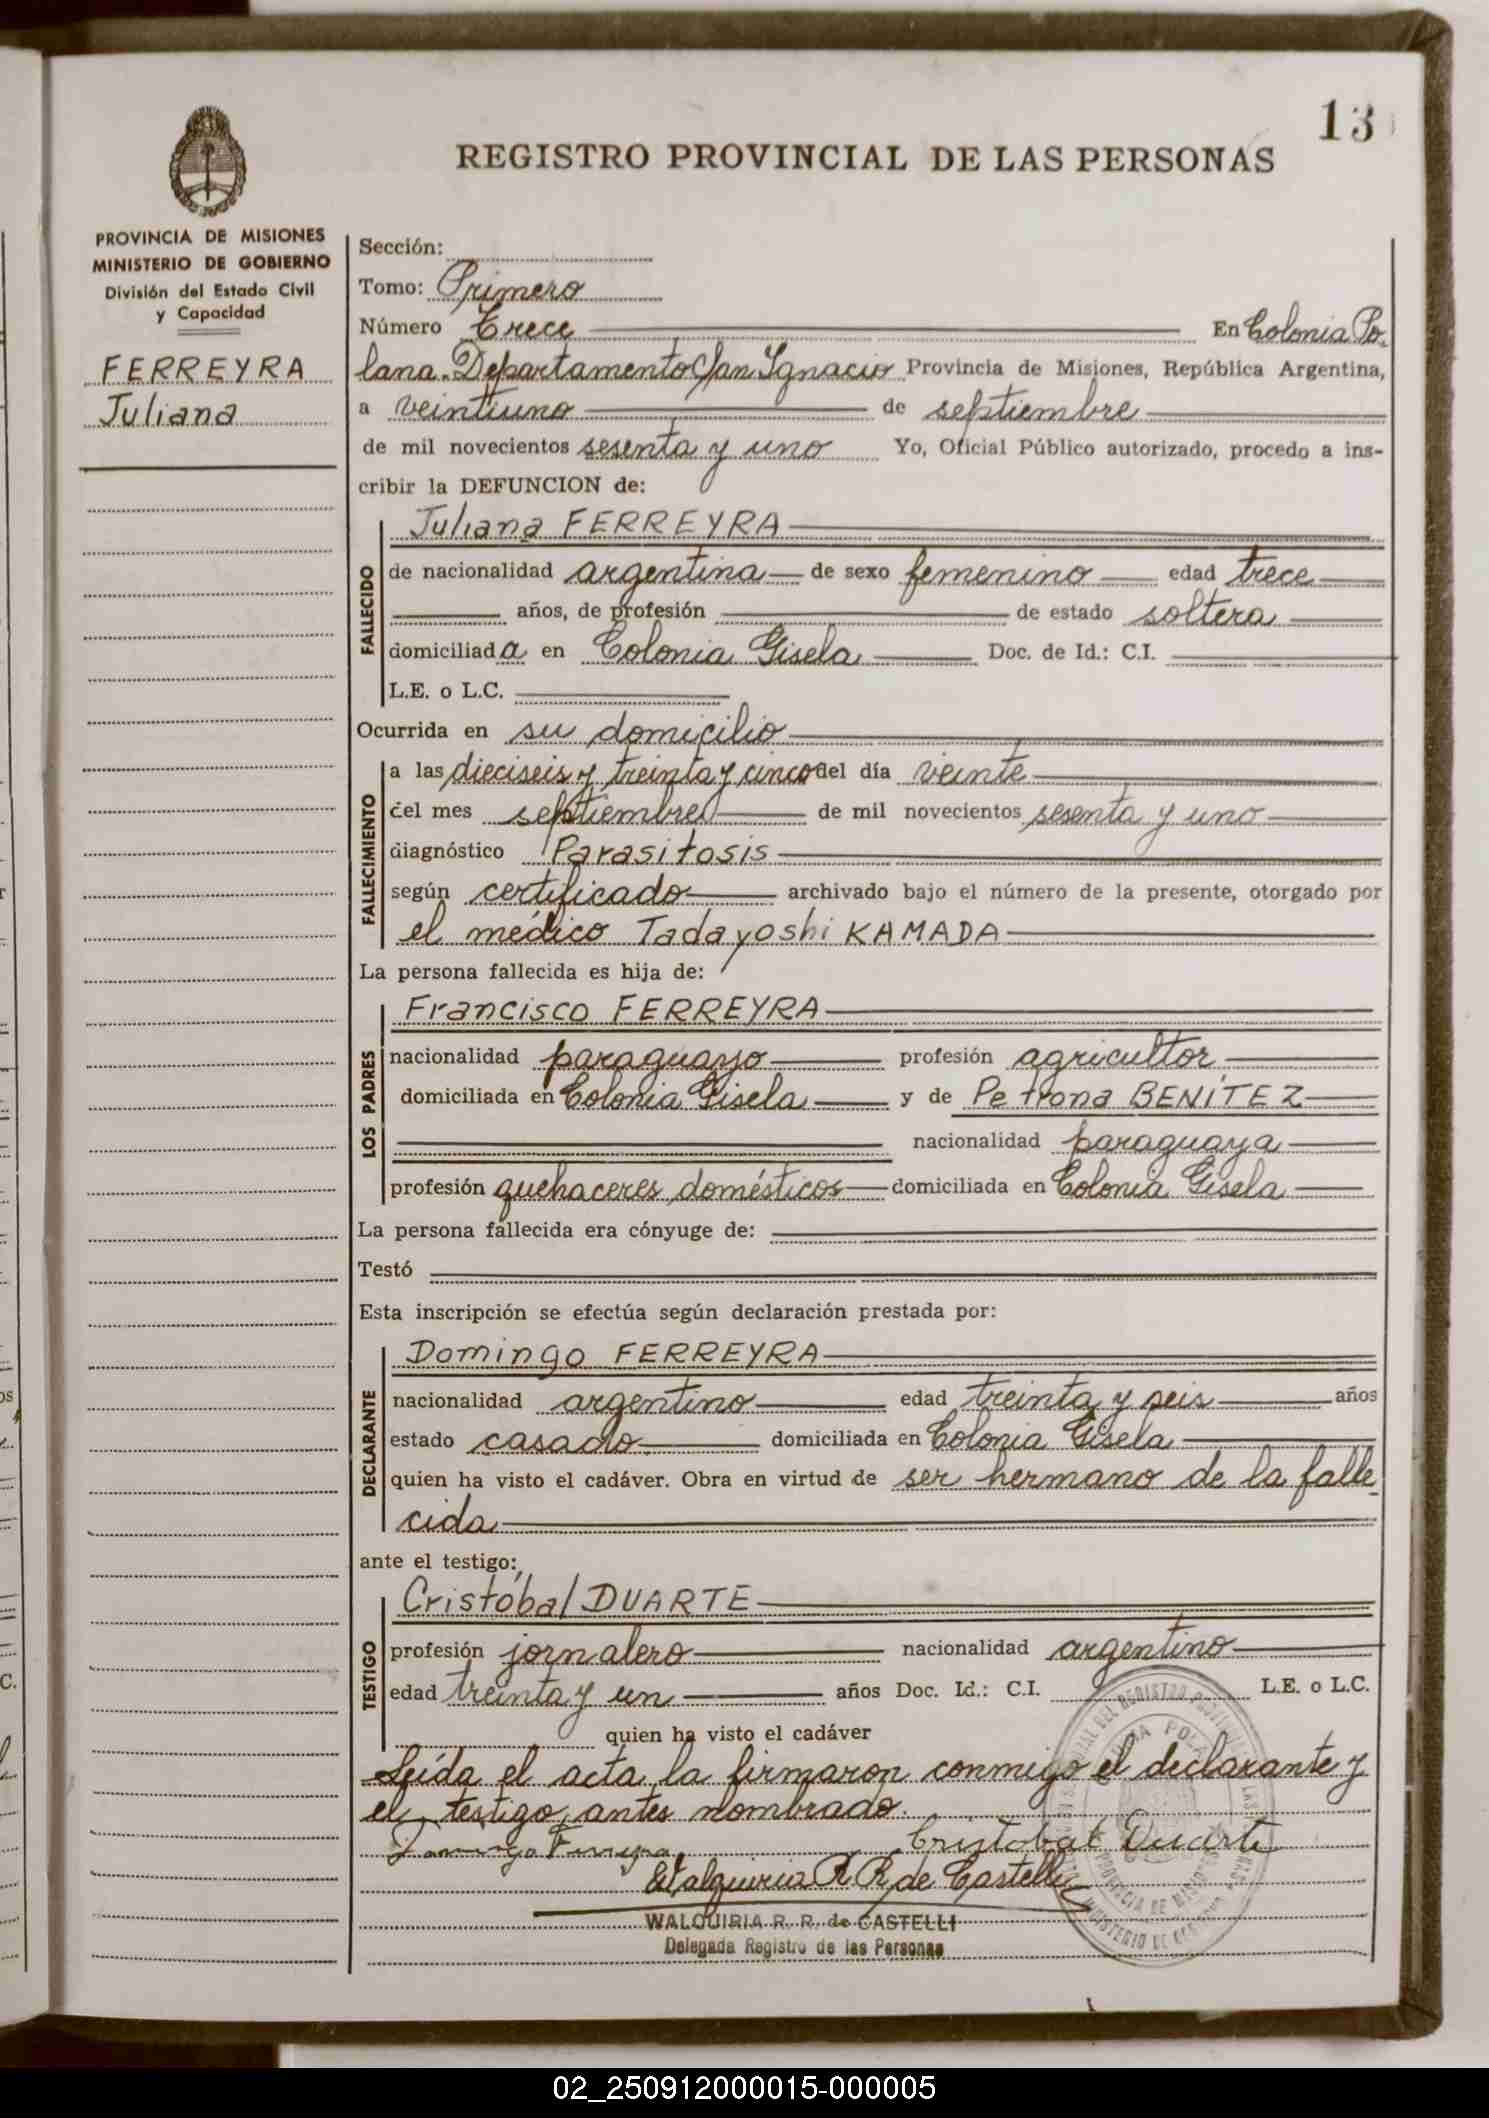 13
REGISTRO PROVINCIAL DE LAS PERSONAS
PROVINCIA DE MISIONES
MINISTERIO DE GOBIERNO
División del Estado Civil
y Capacidad
FERREYRA
Juliana
Sección:
Tomo: Primero
Número Trece En Colonia Po-
lana. Departamento San Ignacio Provincia de Misiones, República Argentina,
a veintiuno de septiembre
de mil novecientos sesenta y uno Yo, Oficial Público autorizado, procedo a ins-
cribir la DEFUNCION de:
FALLECIDO
Juliana FERREYRA
de nacionalidad argentina de sexo femenino edad trece
años, de profesión de estado soltera
domiciliada en Colonia Gisela Doc. de Id.: C.I.
L.E. o L.C.
Ocurrida en su domicilio
FALLECIMIENTO
a las dieciseis y treinta y cinco del día veinte
del mes septiembre de mil novecientos sesenta y uno
diagnóstico Parasitosis
según certificado archivado bajo el número de la presente, otorgado por
el médico Tadayoshi KAMADA
La persona fallecida es hija de:
LOS PADRES
Francisco FERREYRA
nacionalidad paraguayo profesión agricultor
domiciliada en Colonia Gisela y de Petrona BENÍTEZ
nacionalidad paraguaya
profesión quehaceres domésticos domiciliada en Colonia Gisela
La persona fallecida era cónyuge de:
Testó
Esta inscripción se efectúa según declaración prestada por:
DECLARANTE
Domingo FERREYRA
nacionalidad argentino edad treinta y seis años
estado casado domiciliada en Colonia Gisela
quien ha visto el cadáver. Obra en virtud de ser hermano de la falle-
cida
ante el testigo:
TESTIGO
Cristóbal DUARTE
profesión jornalero nacionalidad argentino
edad treinta y un años Doc. Id.: C.I. L.E. o L.C.
quien ha visto el cadáver
Leída el acta la firmaron conmigo el declarante y
el testigo antes nombrado.
Domingo Ferreyra Cristobal Duarte
Walquiria R R de Castelli
WALQUIRIA R. R. de CASTELLI
Delegada Registro de las Personas
02_250912000015-000005